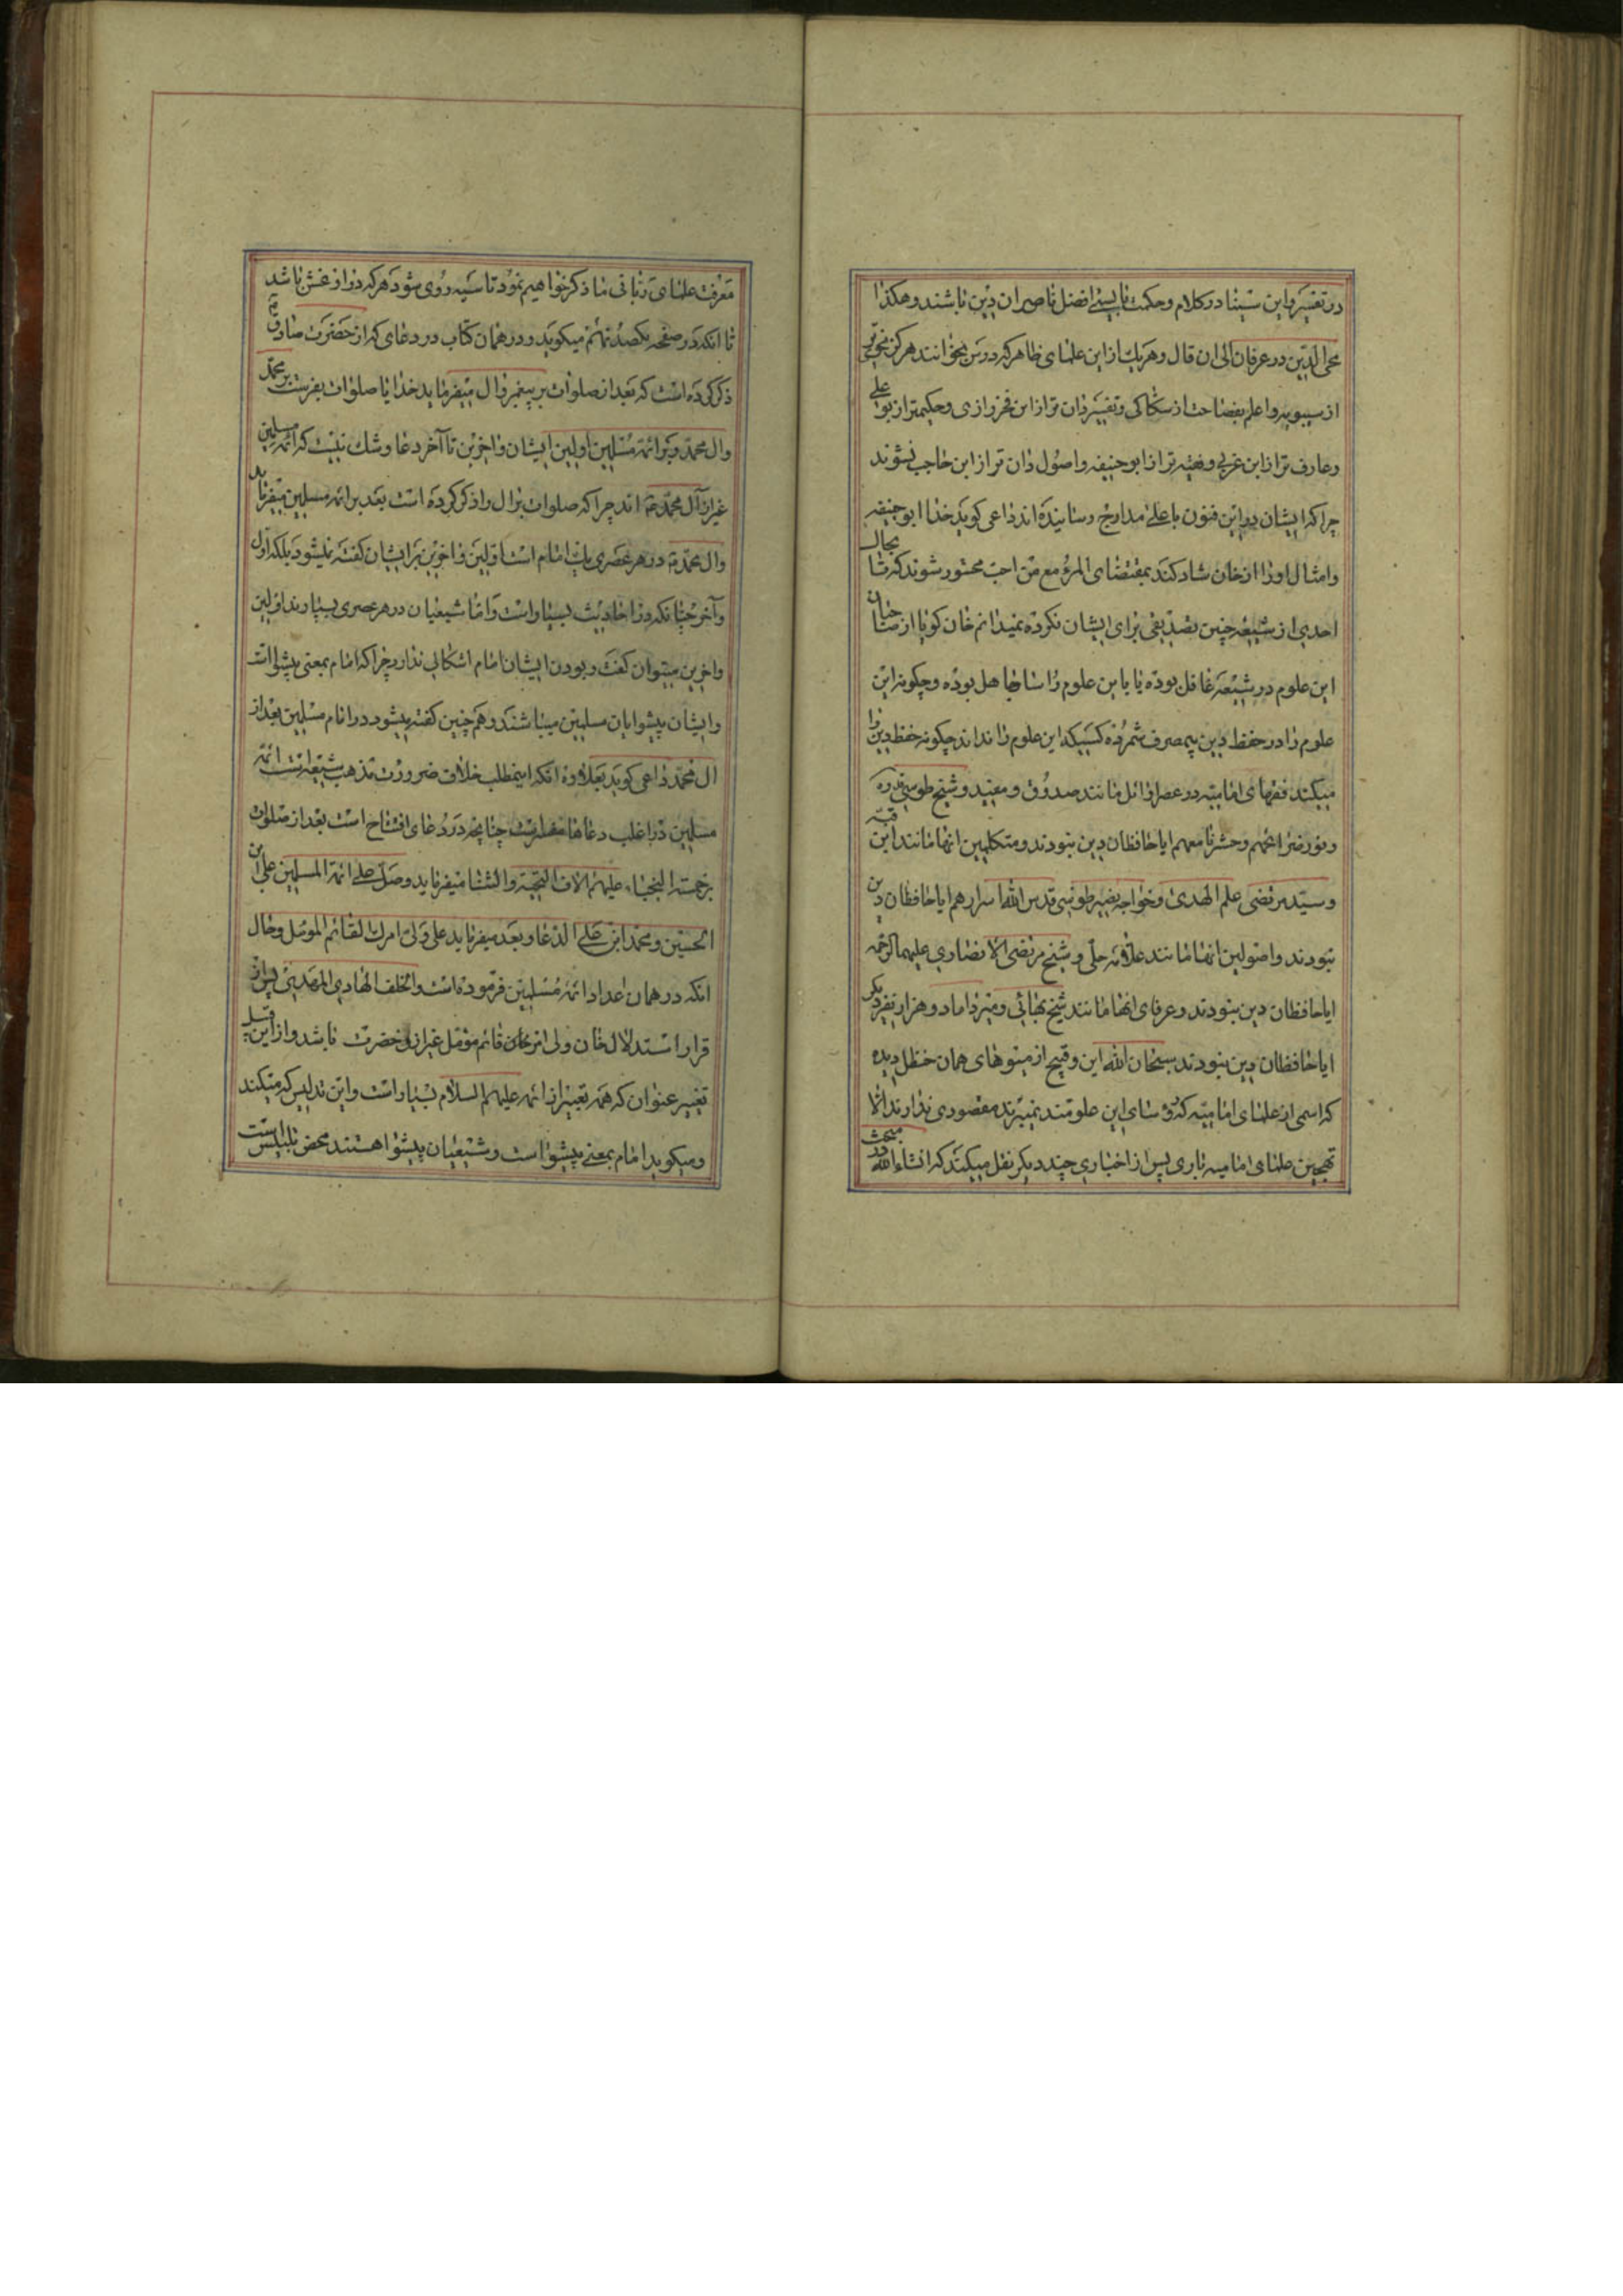 در تفسیر و ابن سینا در کلام و حکمت بایستی افضل ناصران دین باشند و هکذا
محی الدین در عرفان الی ان قال و هر یک از این علمای ظاهر که درس بخوانند هرگز نحوی تر
از سیبویه و اعلم بفصاحت از سکاکی و تفسیر دان تر از ابن فخر رازی و حکیم تر از بو علی
و عارف تر از ابن عربی و فقیه تر از ابو حنیفه و اصول دان تر از ابن حاجب نشوند
چرا که ایشان در این فنون باعلی مدارج رسانیده اند داعی کوید خدا ابو حنیفه
و امثال او را از خان شاد کند بمقتضای المرء مع من احب محشور شوند که تا بحال
احدی از شیعه چنین تصدیقی برای ایشان نکرده نمیدانم خان کویا از صاحبان
این علوم در شیعه غافل بوده یا باین علوم راسا جاهل بوده و چکونه این
علوم را در حفظ دین بیمصرف شمرده کسیکه این علوم را نداند چکونه حفظ دین را
میکند فقهای امامیه در عصر اوائل مانند صدوق و مفید و شیخ طوسی قدوه
و نور ضرائحهم و حشرنا معهم ایا حافظان دین نبودند و متکلمین انها مانند ابن قبه
و سید مرتضی علم الهدی و خواجه نصیر طوسی قدس الله اسرارهم ایا حافظان دین
نبودند و اصولین انها مانند علامه حلی و شیخ مرتضی الانصاری علیهما الرحمه
ایا حافظان دین نبودند و عرفای انها مانند شیخ بهائی و میر داماد و هزار نفر دیکر
ایا حافظان دین نبودند سبحان الله این وقیح از میوهای همان حنظل دیده
که اسمی از علمای امامیه که رؤسای این علومند نمیبرند مقصودی ندارند الا
تهجین علمای امامیه باری پس از اخباری چند دیکر نقل میکند که انشاء الله در مبحث
معرفت علمای ربانی ما ذکر خواهیم نمود تا سیه روی شود هر که در او غش باشد
تا انکه در صفحه یکصد نهم میکوید و در همان کتاب در دعای که از حضرت صادق ع
ذکر کرده است که بعد از صلوات بر پیغمبر و ال میفرماید خدایا صلوات بفرست بر محمد
و ال محمد و بر ائمه مسلمین اولین ایشان و اخرین تا آخر دعا و شک نیست که ائمه مسلمین
غیر از آل محمد ع اند چرا که صلوات بر ال را ذکر کرده است بعد بر ائمه مسلمین میفرماید
و ال محمد ع در هر عصری یک امام است اولین و اخرین بر ایشان کفته نمیشود بلکه اول
و آخر چنانکه در احادیث بسیار است و اما شیعیان در هر عصری بسیارند اولین
و اخرین میتوان کفت و بودن ایشان امام اشکالی ندارد چرا که امام بمعنی پیشوا است
و ایشان پیشوایان مسلمین میباشند و هم چنین کفته میشود در امام مسلمین بعد از
ال محمد داعی کوید بعلاوه انکه اینمطلب خلاف ضرورت مذهب شیعه است ائمه
مسلمین در اغلب دعاها مفسر است چنانچه در دعای افتتاح است بعد از صلوات
بر خمسه النجباء علیهم الاف التحیة و الثناء میفرماید و صل علی ائمة المسلمین علی ابن
الحسین و محمد ابن علی الدعا و بعد میفرماید علی ولی امرک القائم المؤمل و حال
انکه در همان اعداد ائمه مسلمین فرموده است و الخلف الهادی المهدی پس از
قرار استدلال خان ولی امر قائم مؤمل غیر از حضرت باشد و از این قبیل
تغییر عنوان که همه تعبیر از ائمه علیهم السلام بسیار است و این تدلیس که میکند
و میکوید امام بمعنی پیشوا است و شیعیان پیشوا هستند محض تلبیس است